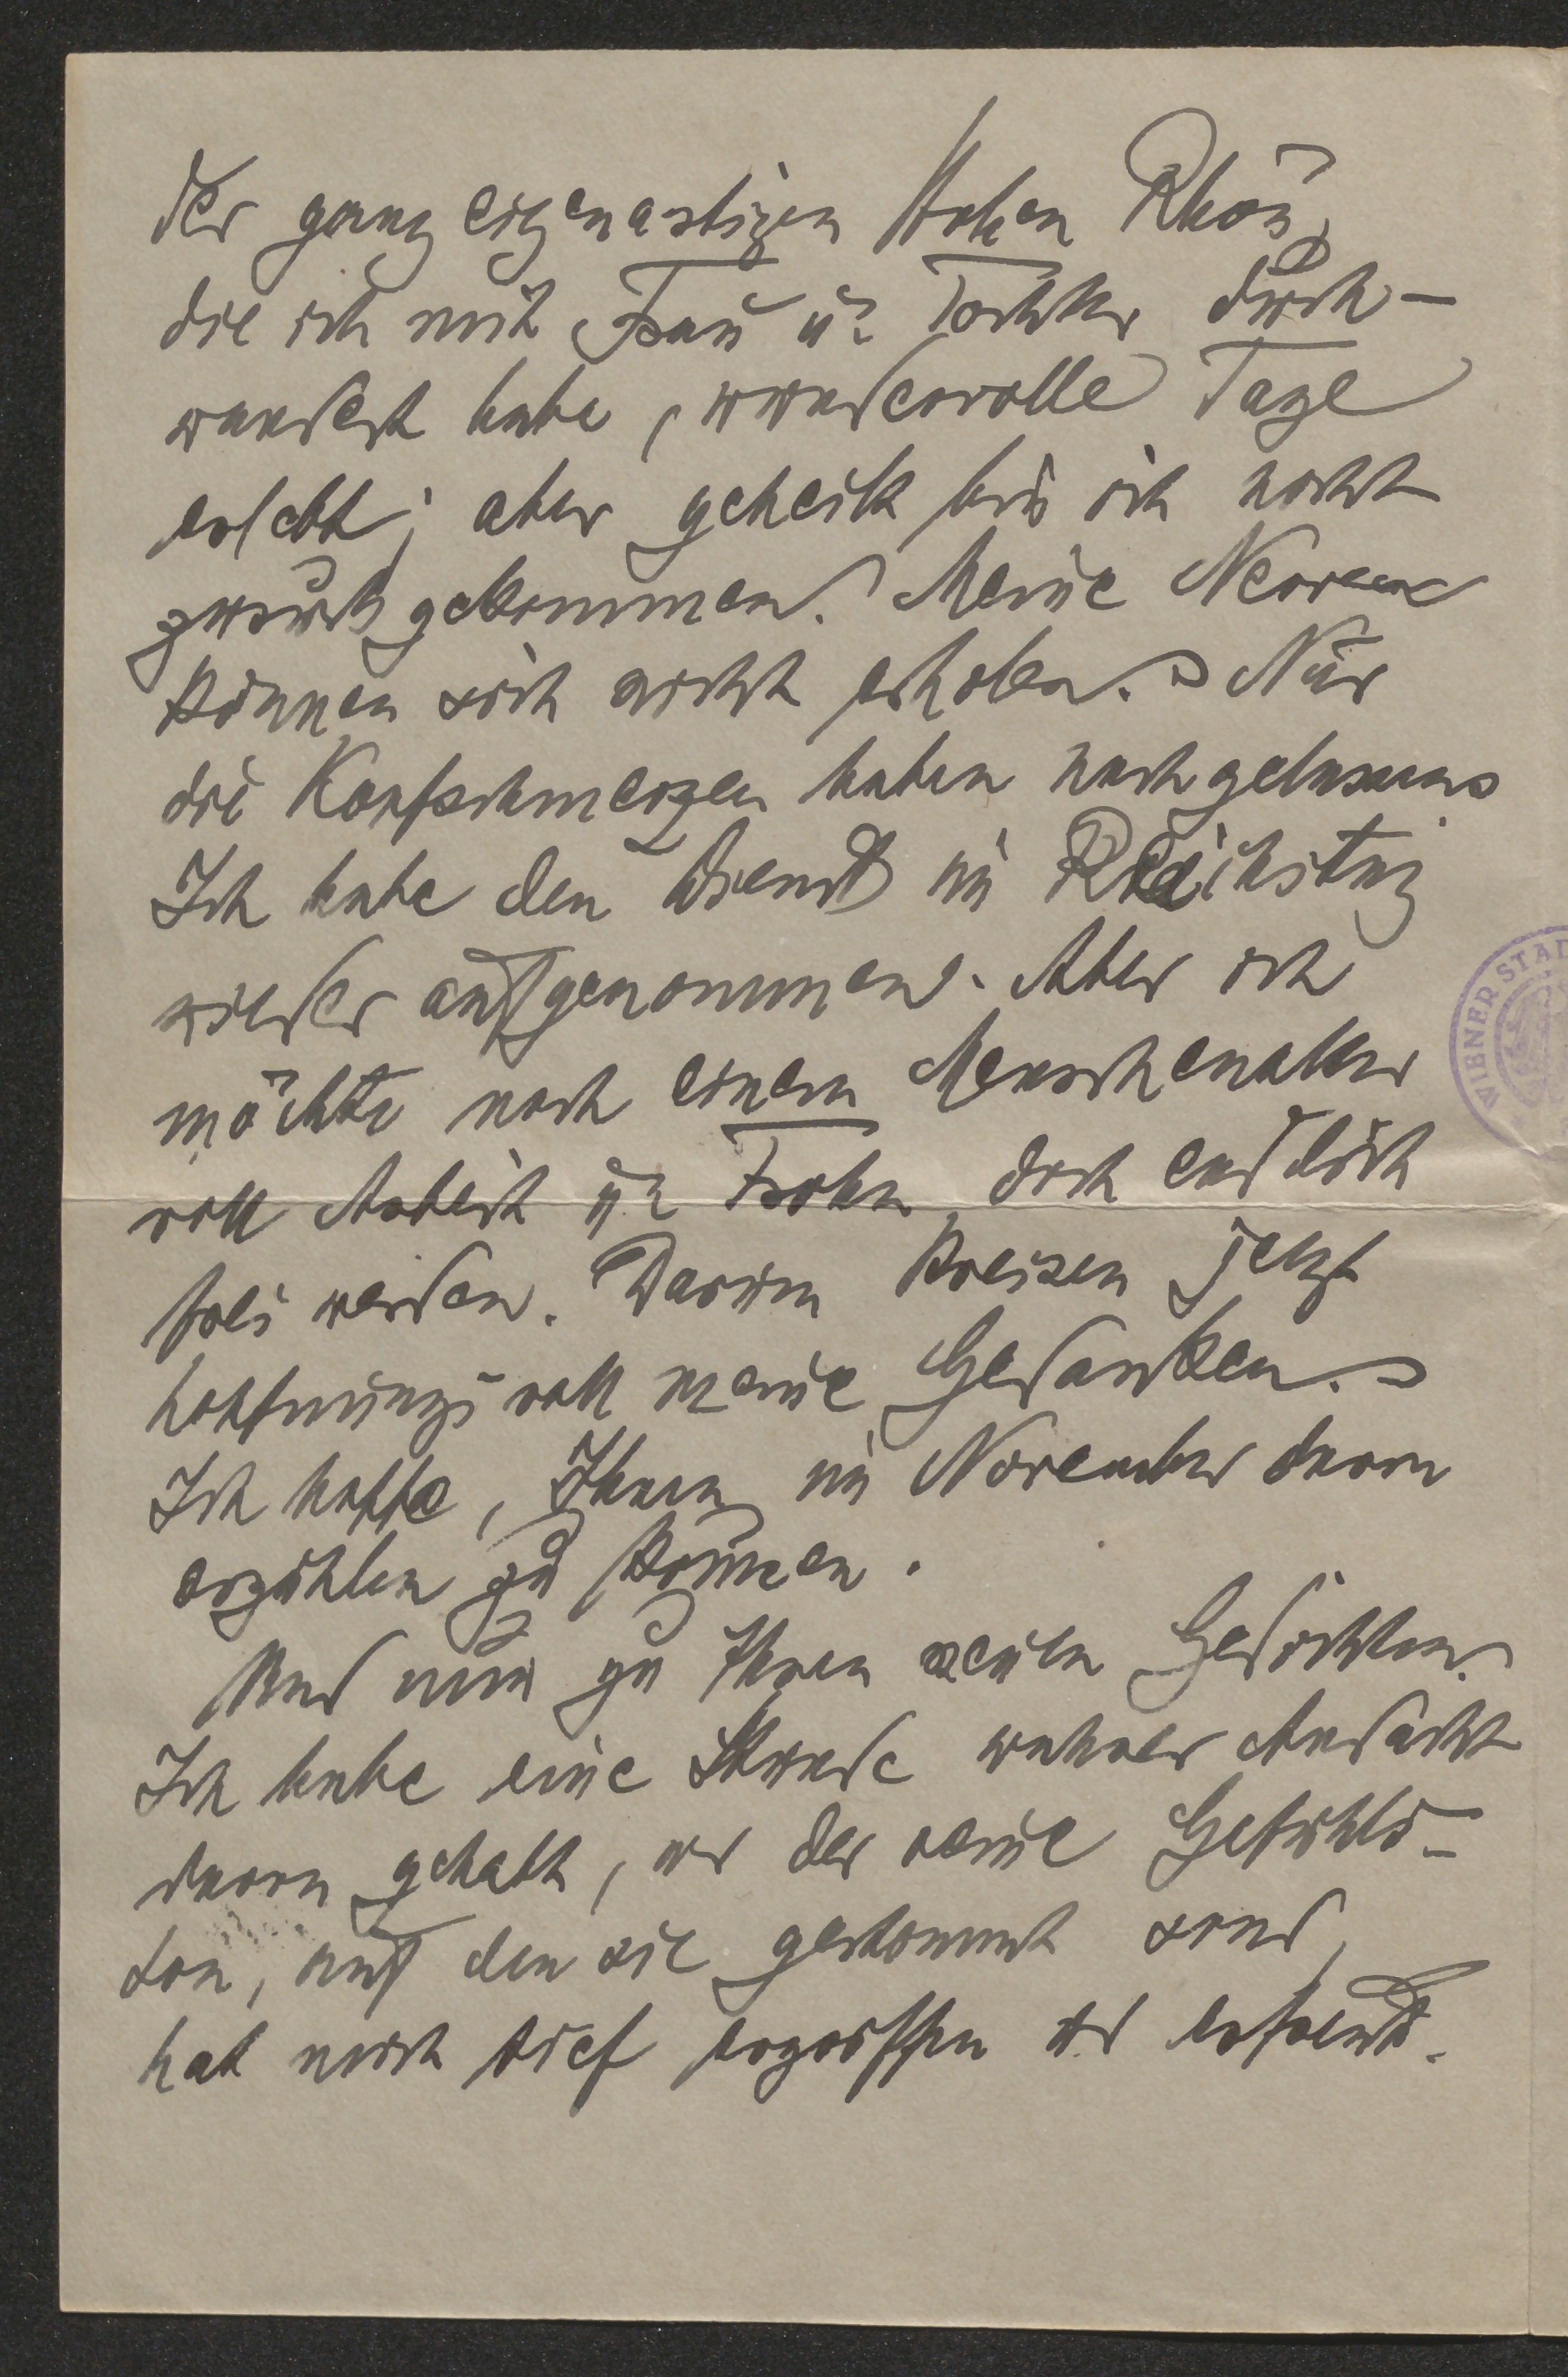 der ganz eigenartigen Hohen Rhön,
die ich mit Frau u. Tochter durch-
wandert habe, wundervolle Tage
erlebt; aber geheilt bin ich nicht
zurückgekommen. Meine Nerven
können sich nicht erholen. Nur
die Kopfschmerzen haben nachgelassen.
Ich habe den Dienst im Reichstag
wieder aufgenommen. Aber ich
möchte nach einem Menschenalter
voll Arbeit u. Frohn doch endlich
frei werden. Darum kreisen jetzt
hoffnungsvoll meine Gedanken.
Ich hoffe, Ihnen im November davon
erzählen zu können.
Und nun zu Ihren neuen Gedichten.
Ich habe eine Stunde wahrer Andacht
davon gehabt, und der reine Gefühls-
ton, auf den sie gestimmt sind,
hat mich tief ergriffen und erfreut.
WIENER STAD